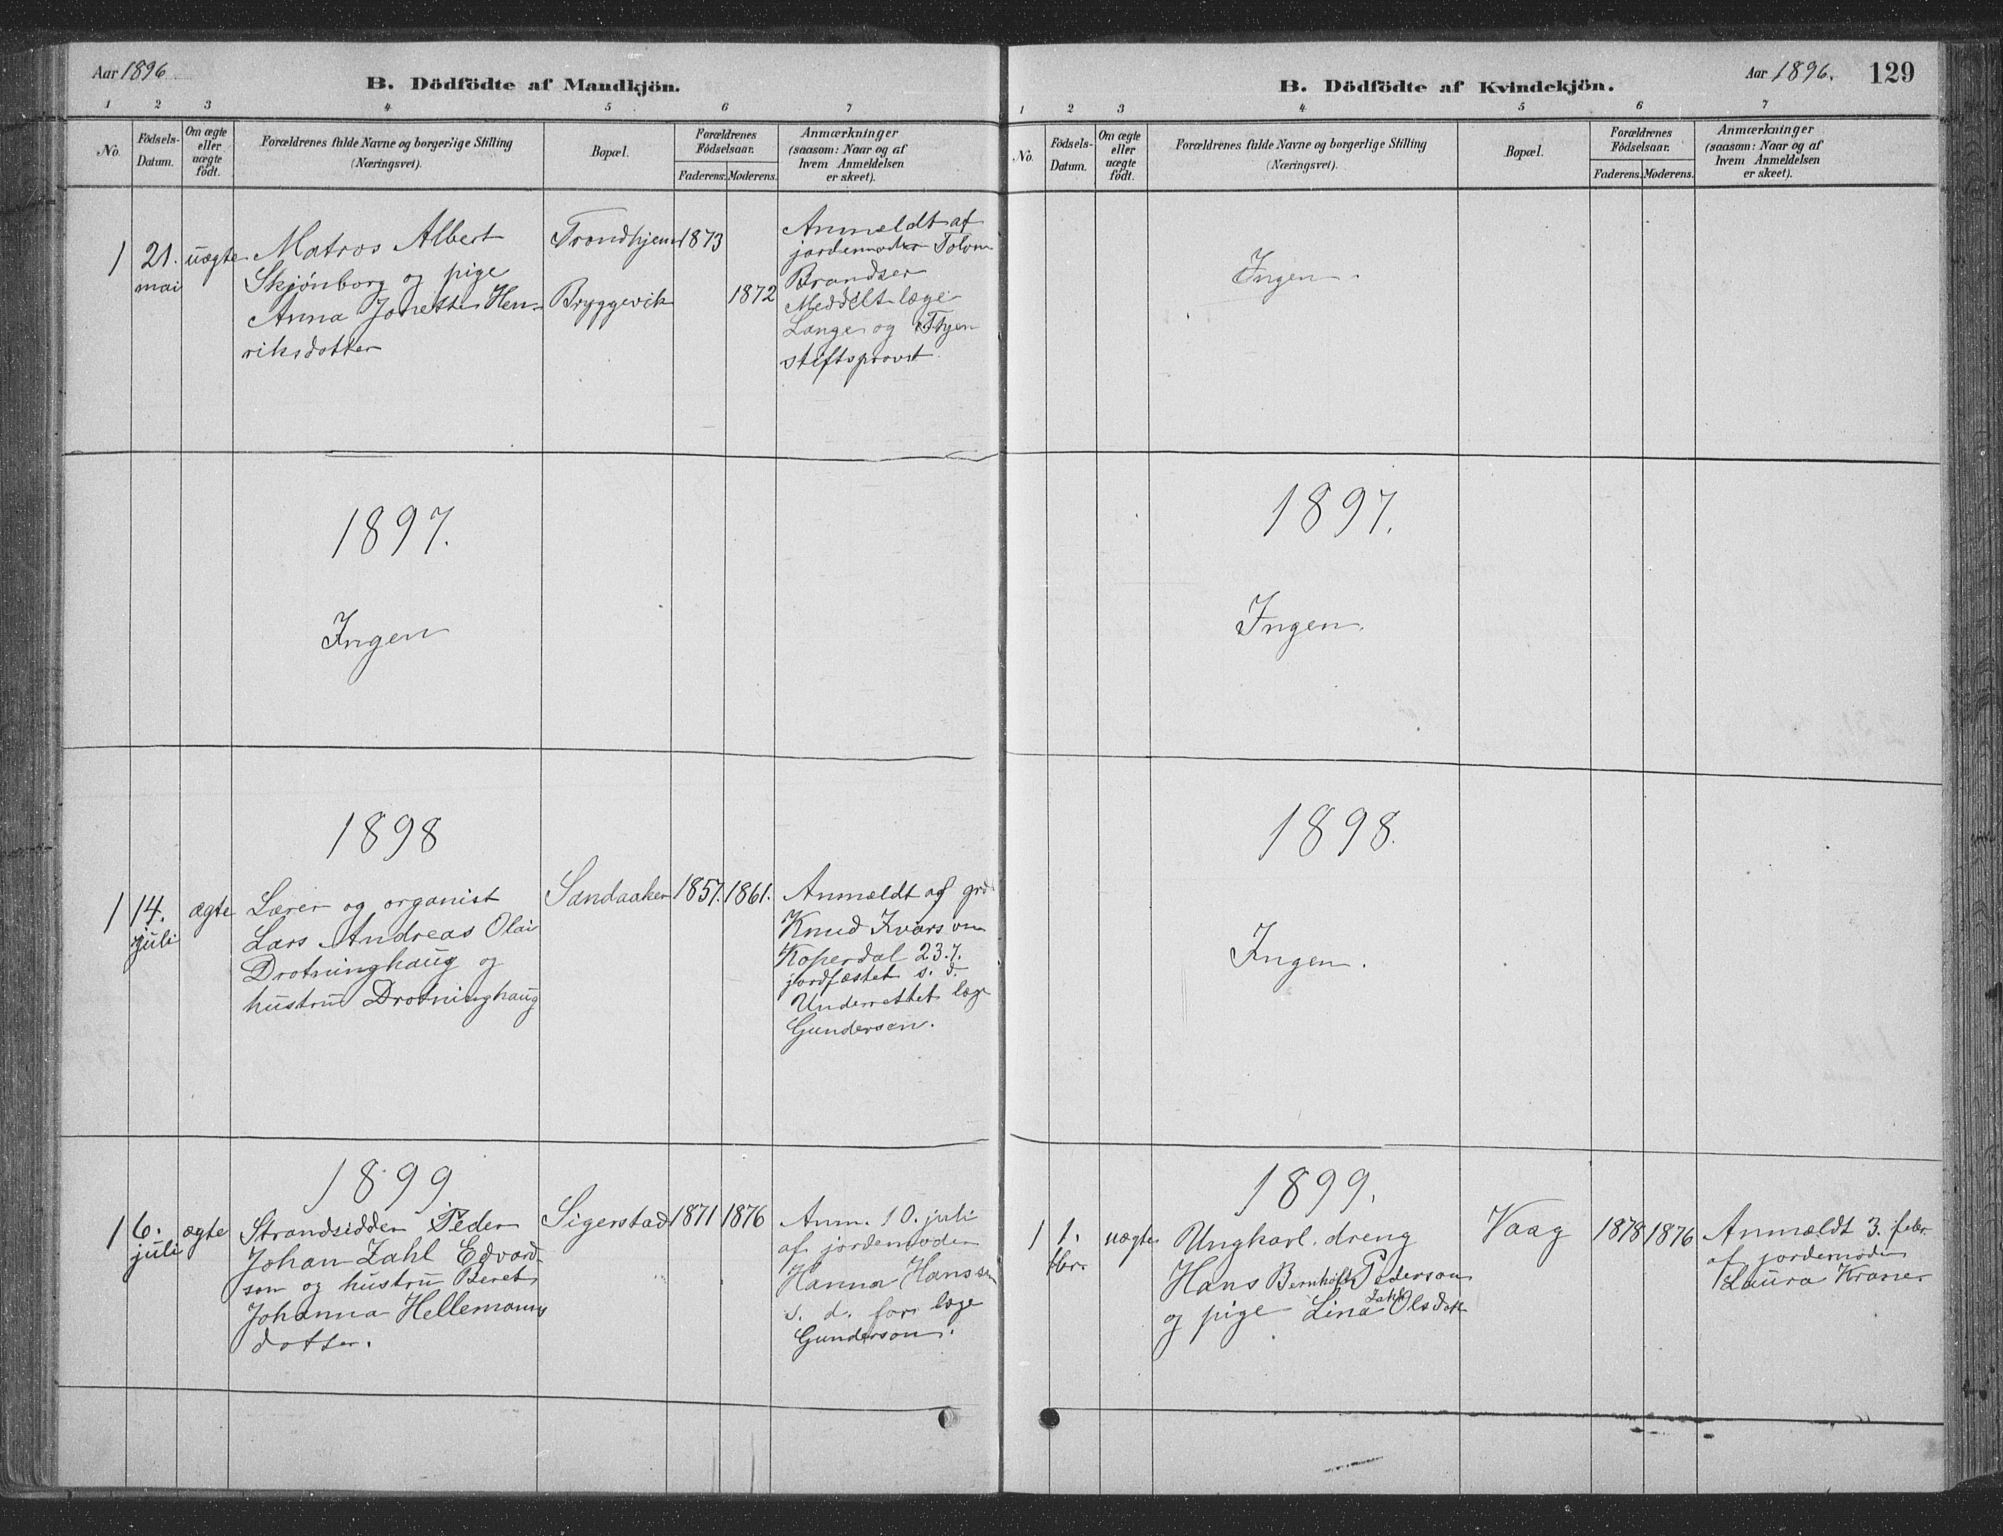 Aar 1896
B. Dödfödte af Mandkjön.
1 2 3 4 5 6 7
No.
Födsels-
Datum.
Om ægte
eller
uægte
födt.
Forældrenes fulde Navne og borgerlige Stilling
(Næringsvei).
Bopæl.
Forældrenes
Födselsaar.
Faderens. Moderens.
Anmærkninger
(saasom: Naar og af
hvem Anmeldelsen
er skeet).
1
21.
mai
uægte
Matros Albert
Skjønborg og pige
Anna Jonette Hen-
riksdotter
Trondhjem
Bryggevik
1873
1872
Anmeldt af
jordemoder
Brandser
Meddelt læge
Lange og Thjem
stiftsprovst
1897.
Ingen
1898
1
14.
juli
ægte
Lærer og organist
Lars Andreas Olai
Drotninghaug og
hustru Drotninghaug
Sandaaker
1857.
1861.
Anmeldt af
Knud Ivarson
Koperdal 23.7.
jordfæstet s. d.
Underrettet læge
Gundersen.
1899
1
6.
juli
ægte
Strandsidder Peder
Johan Zahl Edvard-
son og hustru Beret
Johanna Hellemanns
dotter.
Sigerstad
1871
1876
Anm. 10. juli
af jordemoder
Hanna Hanssen
s. d. for læge
Gunderson.
Aar 1896. 129
B. Dödfödte af Kvindekjön.
1 2 3 4 5 6 7
No.
Födsels-
Datum.
Om ægte
eller
uægte
födt.
Forældrenes fulde Navne og borgerlige Stilling
(Næringsvei).
Bopæl.
Forældrenes
Födselsaar.
Faderens. Moderens.
Anmærkninger
(saasom: Naar og af
hvem Anmeldelsen
er skeet).
Ingen.
1897.
Ingen.
1898.
Ingen.
1899.
1
1.
febr.
uægte
Ungkarl dreng
Hans Bernhoft Pederson
og pige Lina Olsdatt
Vaag
1878
1876
Anmældt 3. febr.
af jordemoder
Laura Kraner